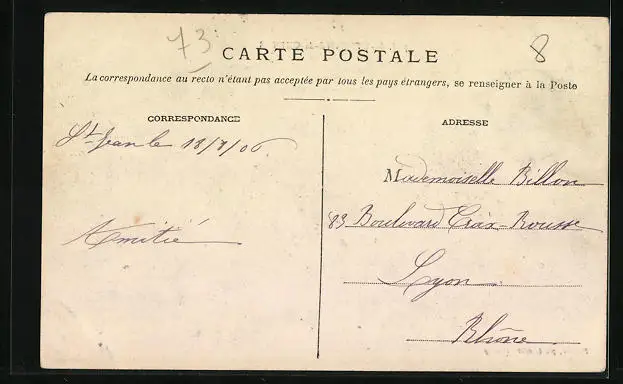 73
8
CARTE POSTALE
La correspondance au recto n'étant pas acceptée par tous les pays étrangers, se renseigner à la Poste
CORRESPONDANCE
ADRESSE
St-Jean le 18/8/06
Mademoiselle Billon
83 Boulevard Croix-Rousse
Amitié
Lyon
Rhône